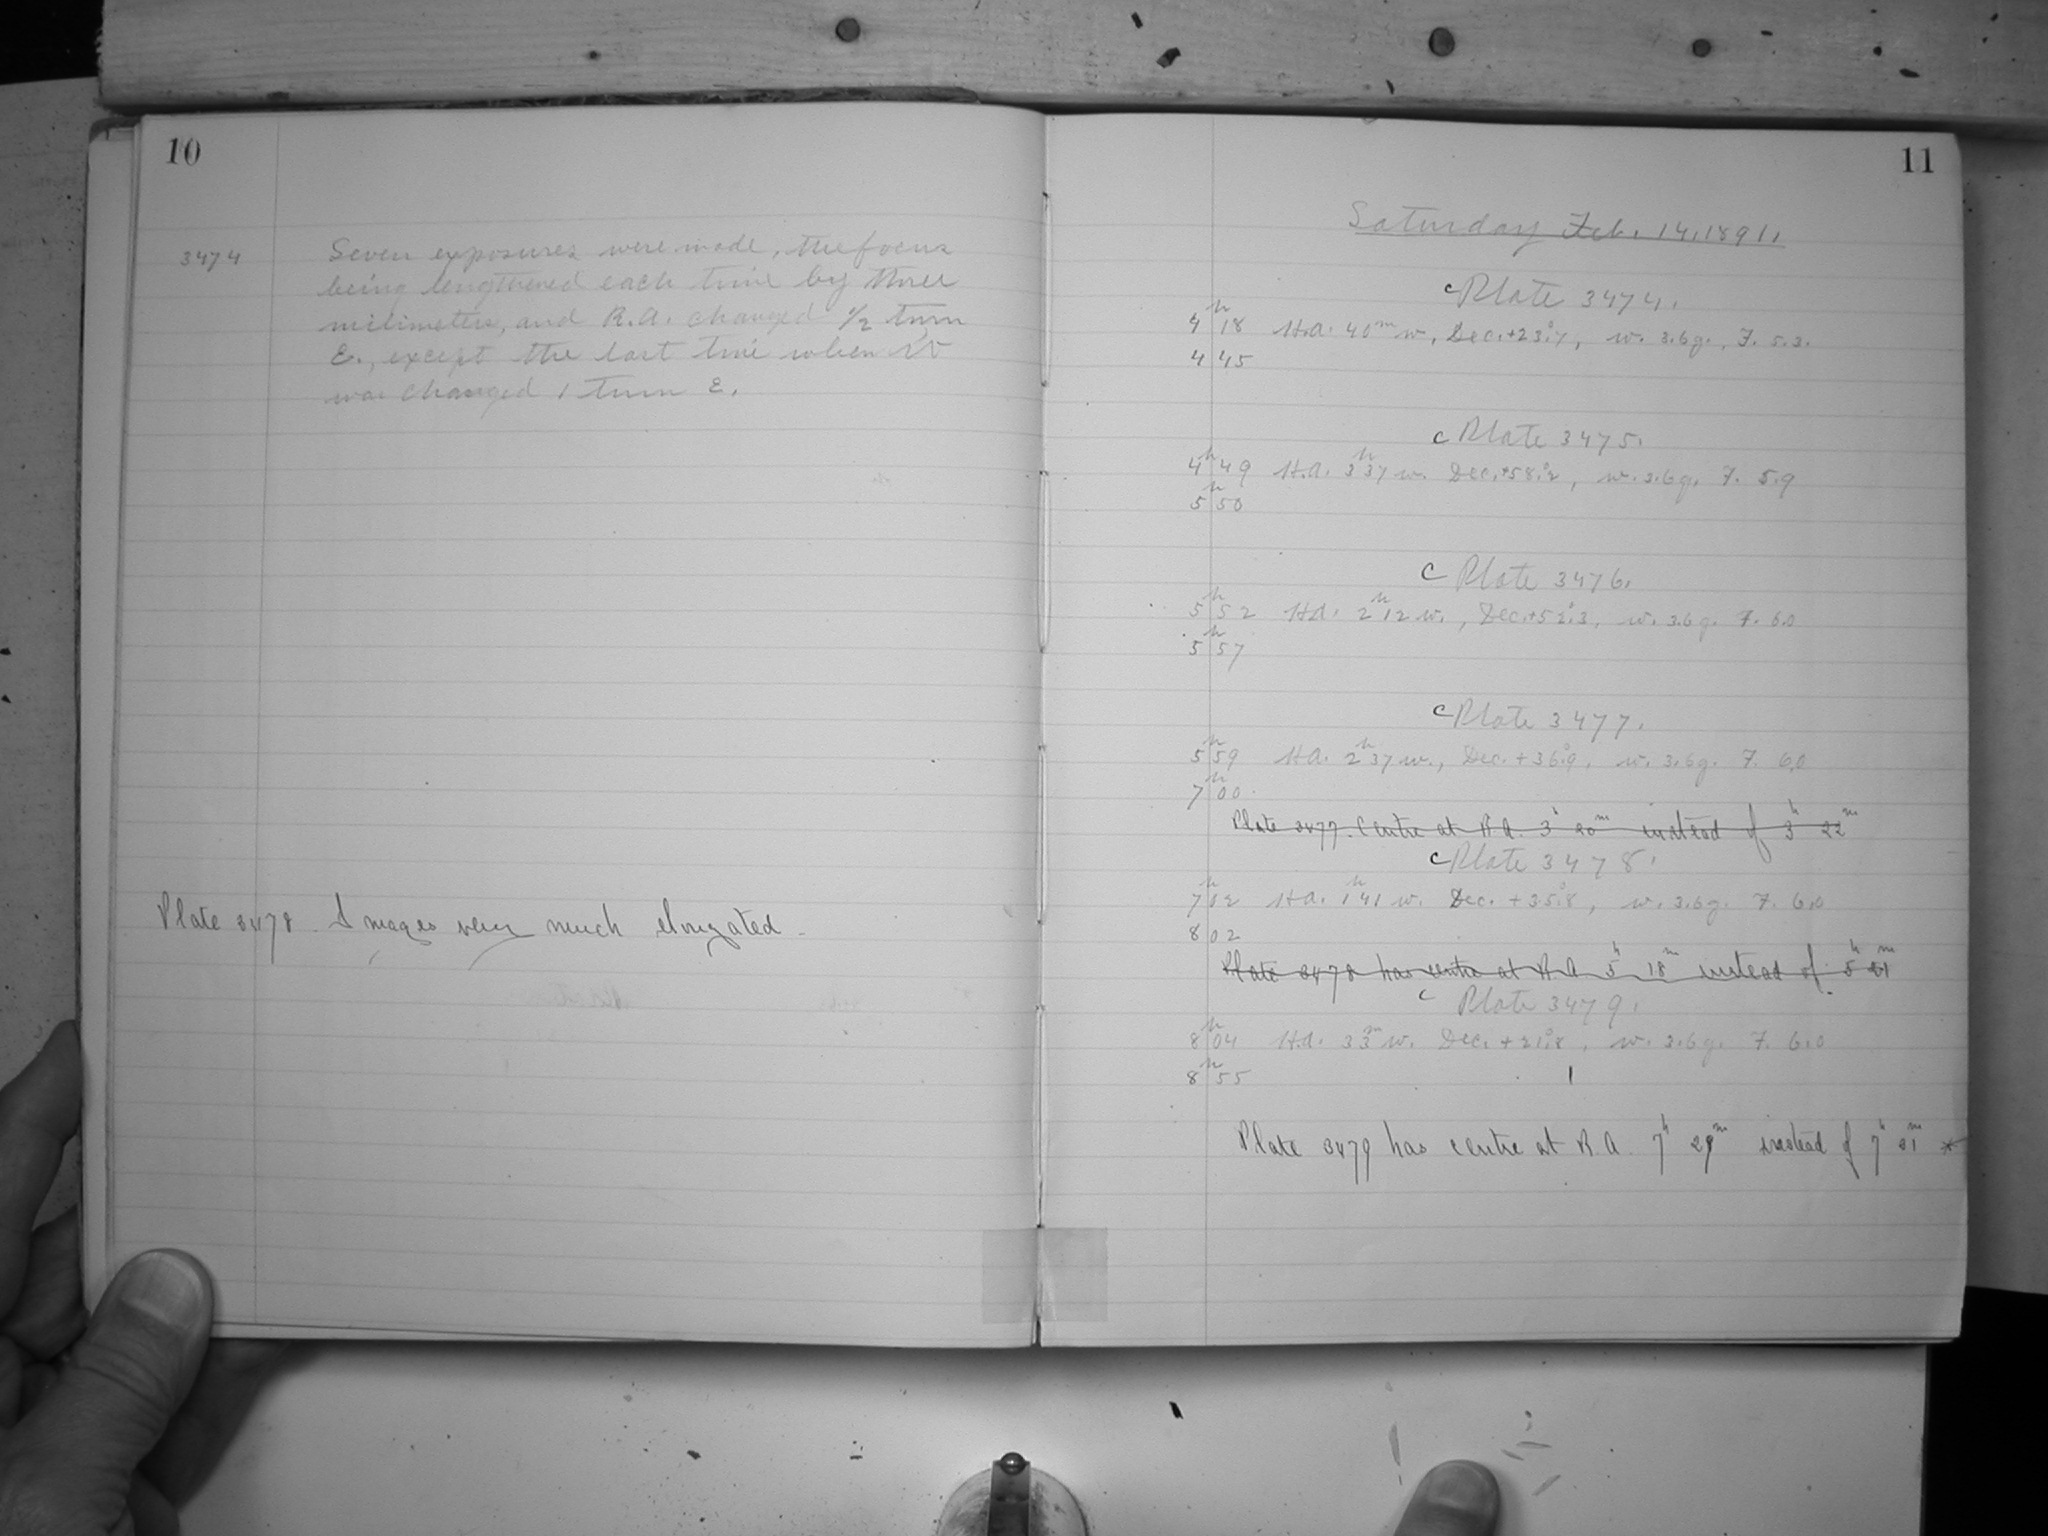 10
3474 Seven exposures were made, the focus
being lengthened each time by three
milimeters, and R.A. changed 1/2 turn
E., except the last time when it
was changed 1 turn E.
Plate 3478. Images very much elongated.
11
Saturday Feb. 14, 1891.
c Plate 3474.
4h 18 H.A. 40m w, Dec. +23°.7, w. 3.6g., F. 5.3.
4 45
c Plate 3475.
4h 49 H.A. 3h 37 w. Dec. +58°.2, w. 3.6g. F. 5.9
5h 50
c Plate 3476.
5h 52 H.A. 2h 12 w., Dec. +52°.3, w. 3.6g. F. 6.0
5h 57
c Plate 3477.
5h 59 H.A. 2h 37 w., Dec. +36°.9, w. 3.6g. F. 6.0
7h 00
Plate 3477. Centre at R.A. 3h 20m instead of 3h 22m
c Plate 3478.
7h 12 H.A. 1h 41 w. Dec. +35°.8, w. 3.6g. F. 6.0
8 02
Plate 3478 has centre at R.A. 5h 18m instead of 5h 21m
c Plate 3479.
8h 04 H.A. 33m w. Dec. +21°.8, w. 3.6g. F. 6.0
8h 55
Plate 3479 has centre at R.A. 7h 29m instead of 7h 31m *